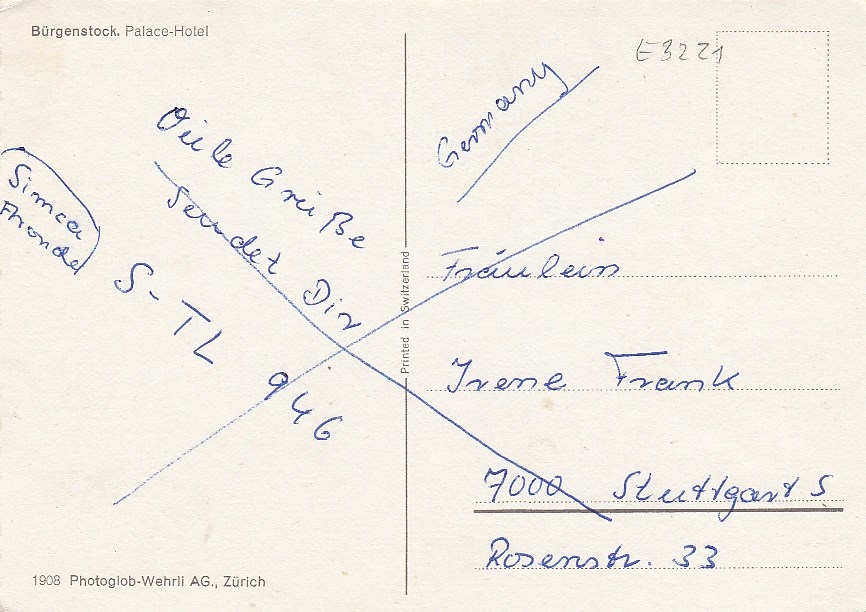 Bürgenstock. Palace-Hotel
E3221
Germany
Viele Grüße
sendet Dir
S-TL
946
Simca
Printed in Switzerland
Fräulein
Irene Frank
7000 Stuttgart S
Rosenstr. 33
1908 Photoglob-Wehrli AG., Zürich